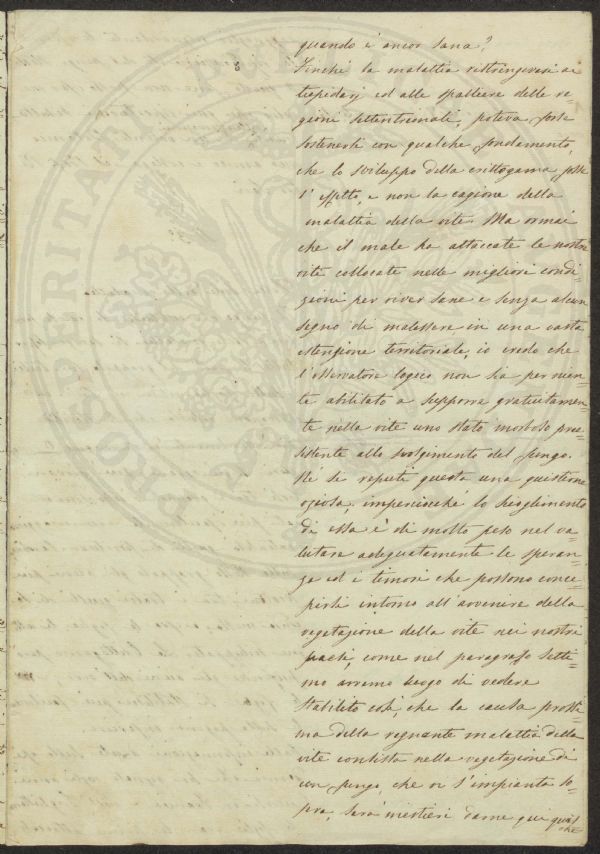 quando è ancor sana?
Finché la malattia ristringevasi ai
tiepidarj ed alle spalliere delle re=
gioni settentrionali, poteva forse
sostenersi con qualche fondamento,
che lo sviluppo della crittogama fosse
l'effetto, e non la cagione della
malattia della vite. Ma ormai
che il male ha attaccate le nostre
viti collocate nelle migliori condi=
zioni per viver sane e senza alcun
segno di malessere in una vasta
estenzione territoriale, io credo che
l'osservatore logico non sia per nien=
te abilitato a supporre gratuitamen=
te nella vite uno stato morboso pree=
sistente allo svolgimento del fungo.
Né si reputi questa una questione
oziosa, imperciocché lo scioglimento
di essa è di molto peso nel va=
lutare adeguatamente le speran=
ze ed i timori che possono conce=
pirsi intorno all'avvenire della
vegetazione della vite nei nostri
paesi, come nel paragrafo setti=
mo avremo luogo di vedere
Stabilito così, che la causa prossi=
ma della regnante malattia della
vite consista nella vegetazione di
un fungo, che vi s'impianta so=
pra, sarà mestieri darne qui qual=
che
PROSPERITATI PUBLICAE